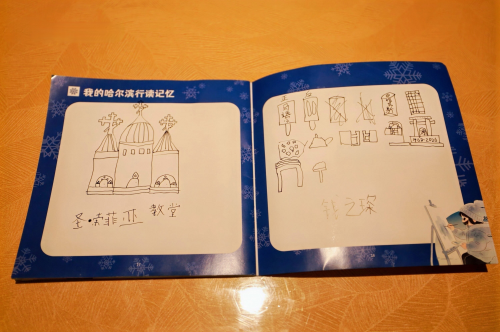 我的哈尔滨行读记忆
圣·索菲亚 教堂
钱之璨